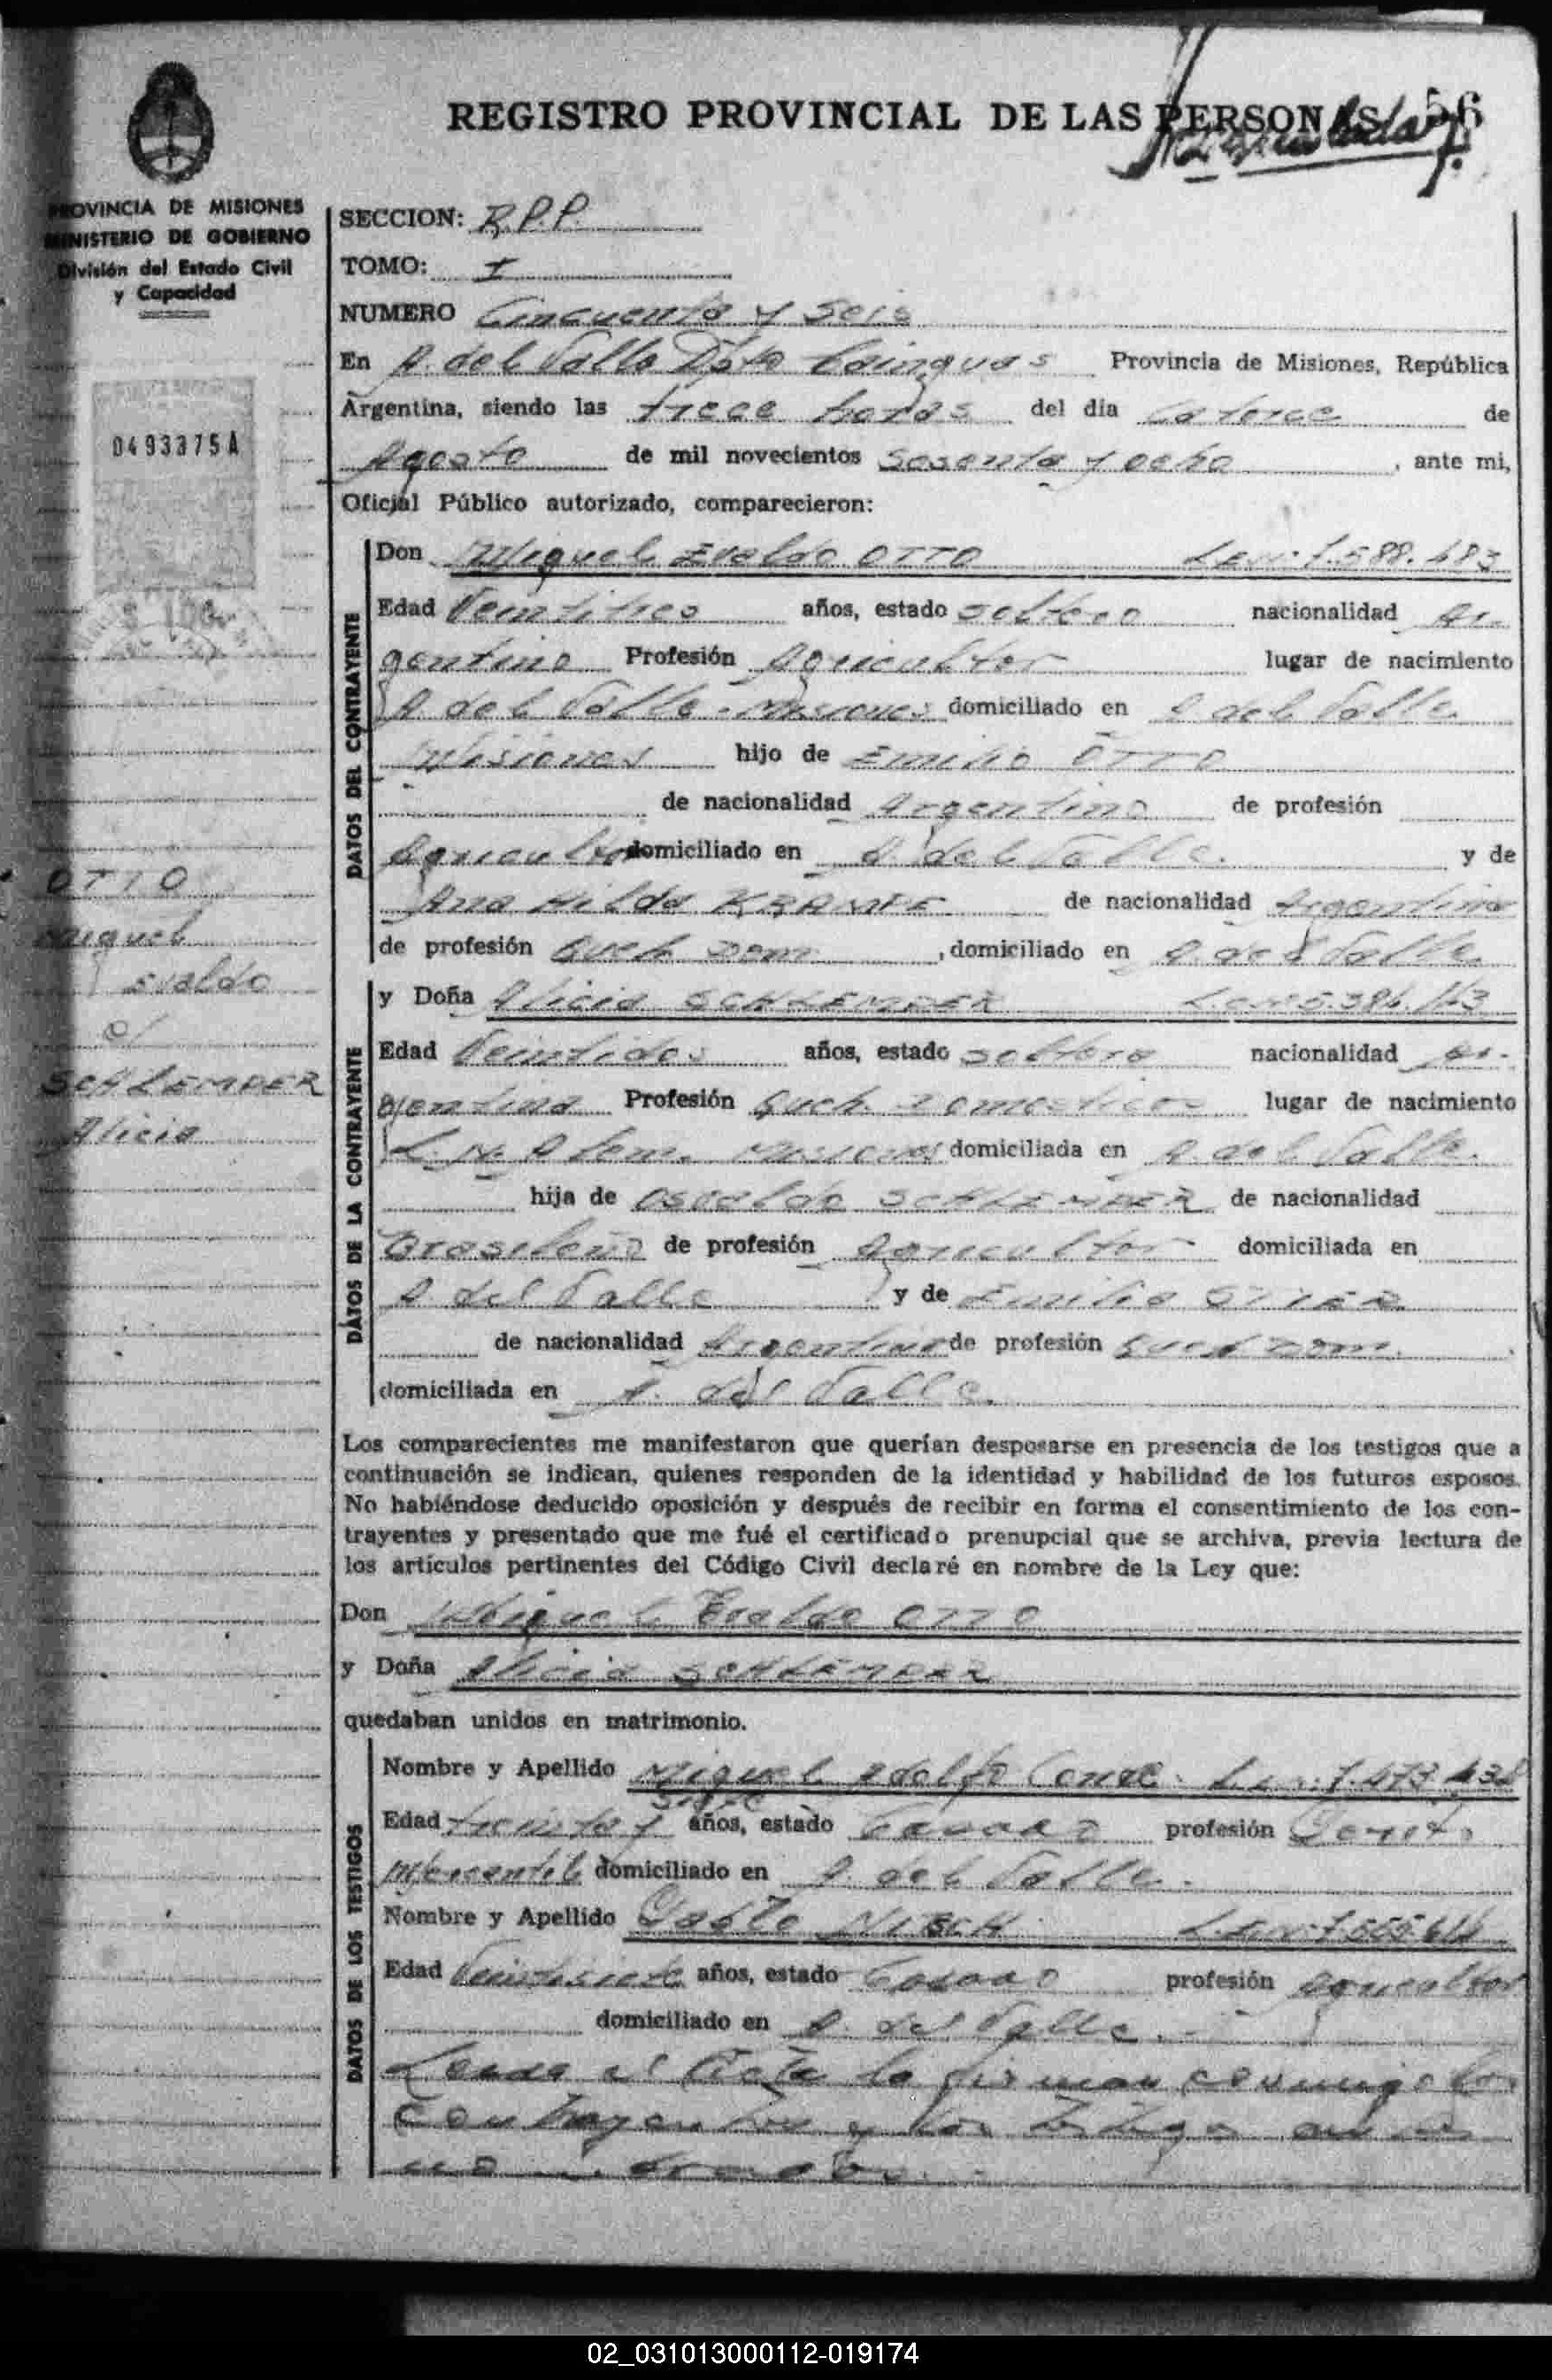 REGISTRO PROVINCIAL DE LAS PERSONAS 56
PROVINCIA DE MISIONES
MINISTERIO DE GOBIERNO
División del Estado Civil
y Capacidad
0493375A
SECCION: R.P.P.
TOMO: I
NUMERO Cincuenta y Seis
En A. del Valle Dpto Cainguas Provincia de Misiones, República
Argentina, siendo las trece horas del día catorce de
Agosto de mil novecientos sesenta y ocho, ante mi,
Oficial Público autorizado, comparecieron:
DATOS DEL CONTRAYENTE
Don Miguel Evaldo OTTO
Edad Veintitres años, estado soltero nacionalidad Ar-
gentino Profesión Agricultor lugar de nacimiento
A del Valle - Misiones domiciliado en A del Valle
Misiones hijo de Emilio OTTO
de nacionalidad Argentino de profesión
Agricultor domiciliado en A. del Valle. y de
Ana Hilda de nacionalidad Argentina
de profesión Queh. Dom , domiciliado en A. del Valle
OTTO
Miguel
Evaldo
c/
SCHLEMPER
Alicia
DATOS DE LA CONTRAYENTE
y Doña Alicia SCHLEMPER
Edad Veintidos años, estado soltera nacionalidad Ar-
gentina Profesión Queh. Domesticos lugar de nacimiento
L. N. Alem. Misiones domiciliada en A. del Valle.
hija de Osvaldo SCHLEMPER de nacionalidad
Brasileño de profesión Agricultor domiciliada en
A del Valle y de Emilia
de nacionalidad Argentina de profesión Queh Dom.
domiciliada en A. del Valle.
Los comparecientes me manifestaron que querían desposarse en presencia de los testigos que a
continuación se indican, quienes responden de la identidad y habilidad de los futuros esposos.
No habiéndose deducido oposición y después de recibir en forma el consentimiento de los con-
trayentes y presentado que me fué el certificado prenupcial que se archiva, previa lectura de
los artículos pertinentes del Código Civil declaré en nombre de la Ley que:
Don Miguel Evaldo OTTO
y Doña Alicia SCHLEMPER
quedaban unidos en matrimonio.
DATOS DE LOS TESTIGOS
Nombre y Apellido Miguel Adolfo
Edad treinta y siete años, estado Casado profesión Perito
Mercantil domiciliado en A. del Valle.
Nombre y Apellido
Edad Veintisiete años, estado Casado profesión Agricultor
domiciliado en A. del Valle.-
Leida el Acta la firman conmigo los
contrayentes y los testigos
02_031013000112-019174